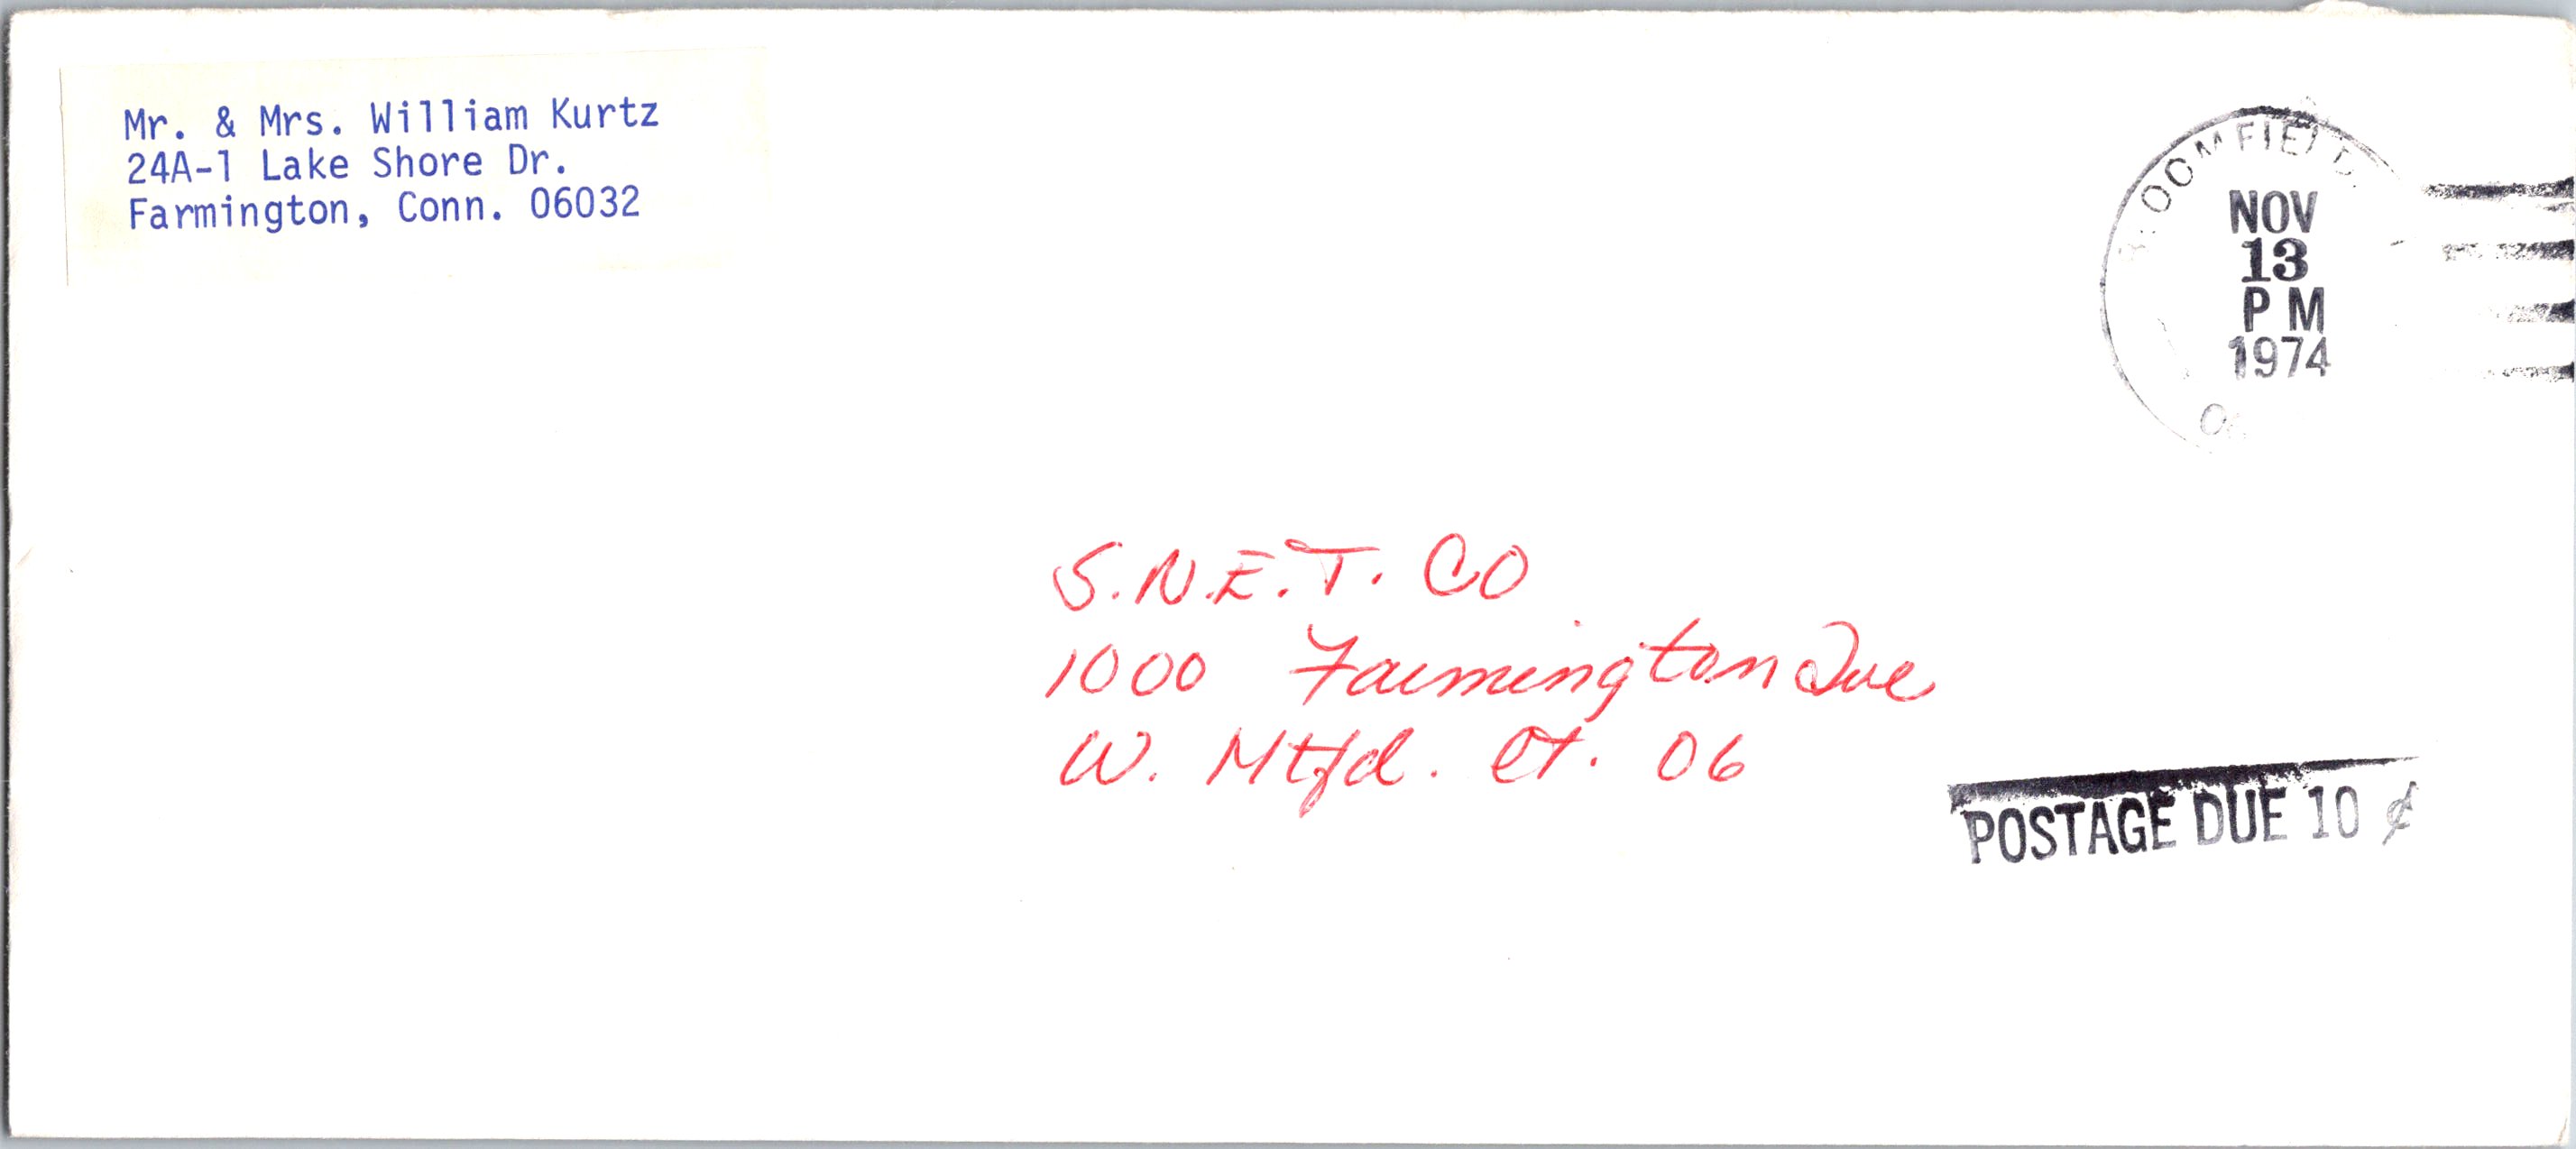 Mr. & Mrs. William Kurtz
24A-1 Lake Shore Dr.
Farmington, Conn. 06032
NOV
13
PM
1974
S.N.E.T. CO
1000 Farmington Ave
W. Htfd. Ct. 06
POSTAGE DUE 10 ¢